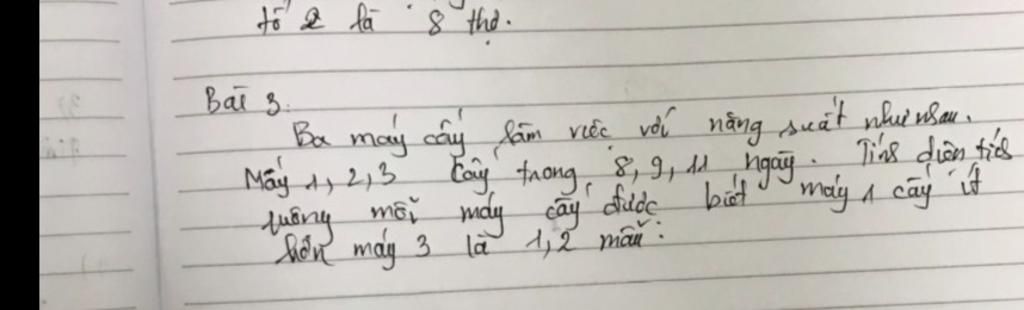 tố 2 là 8 thợ.
Bài 3.
Ba máy cấy làm việc với năng suất như nhau.
Máy 1, 2, 3 cấy trong 8, 9, 11 ngày. Tính diện tích
ruộng mỗi máy cấy được biết máy 1 cấy ít
hơn máy 3 là 1,2 mẫu.